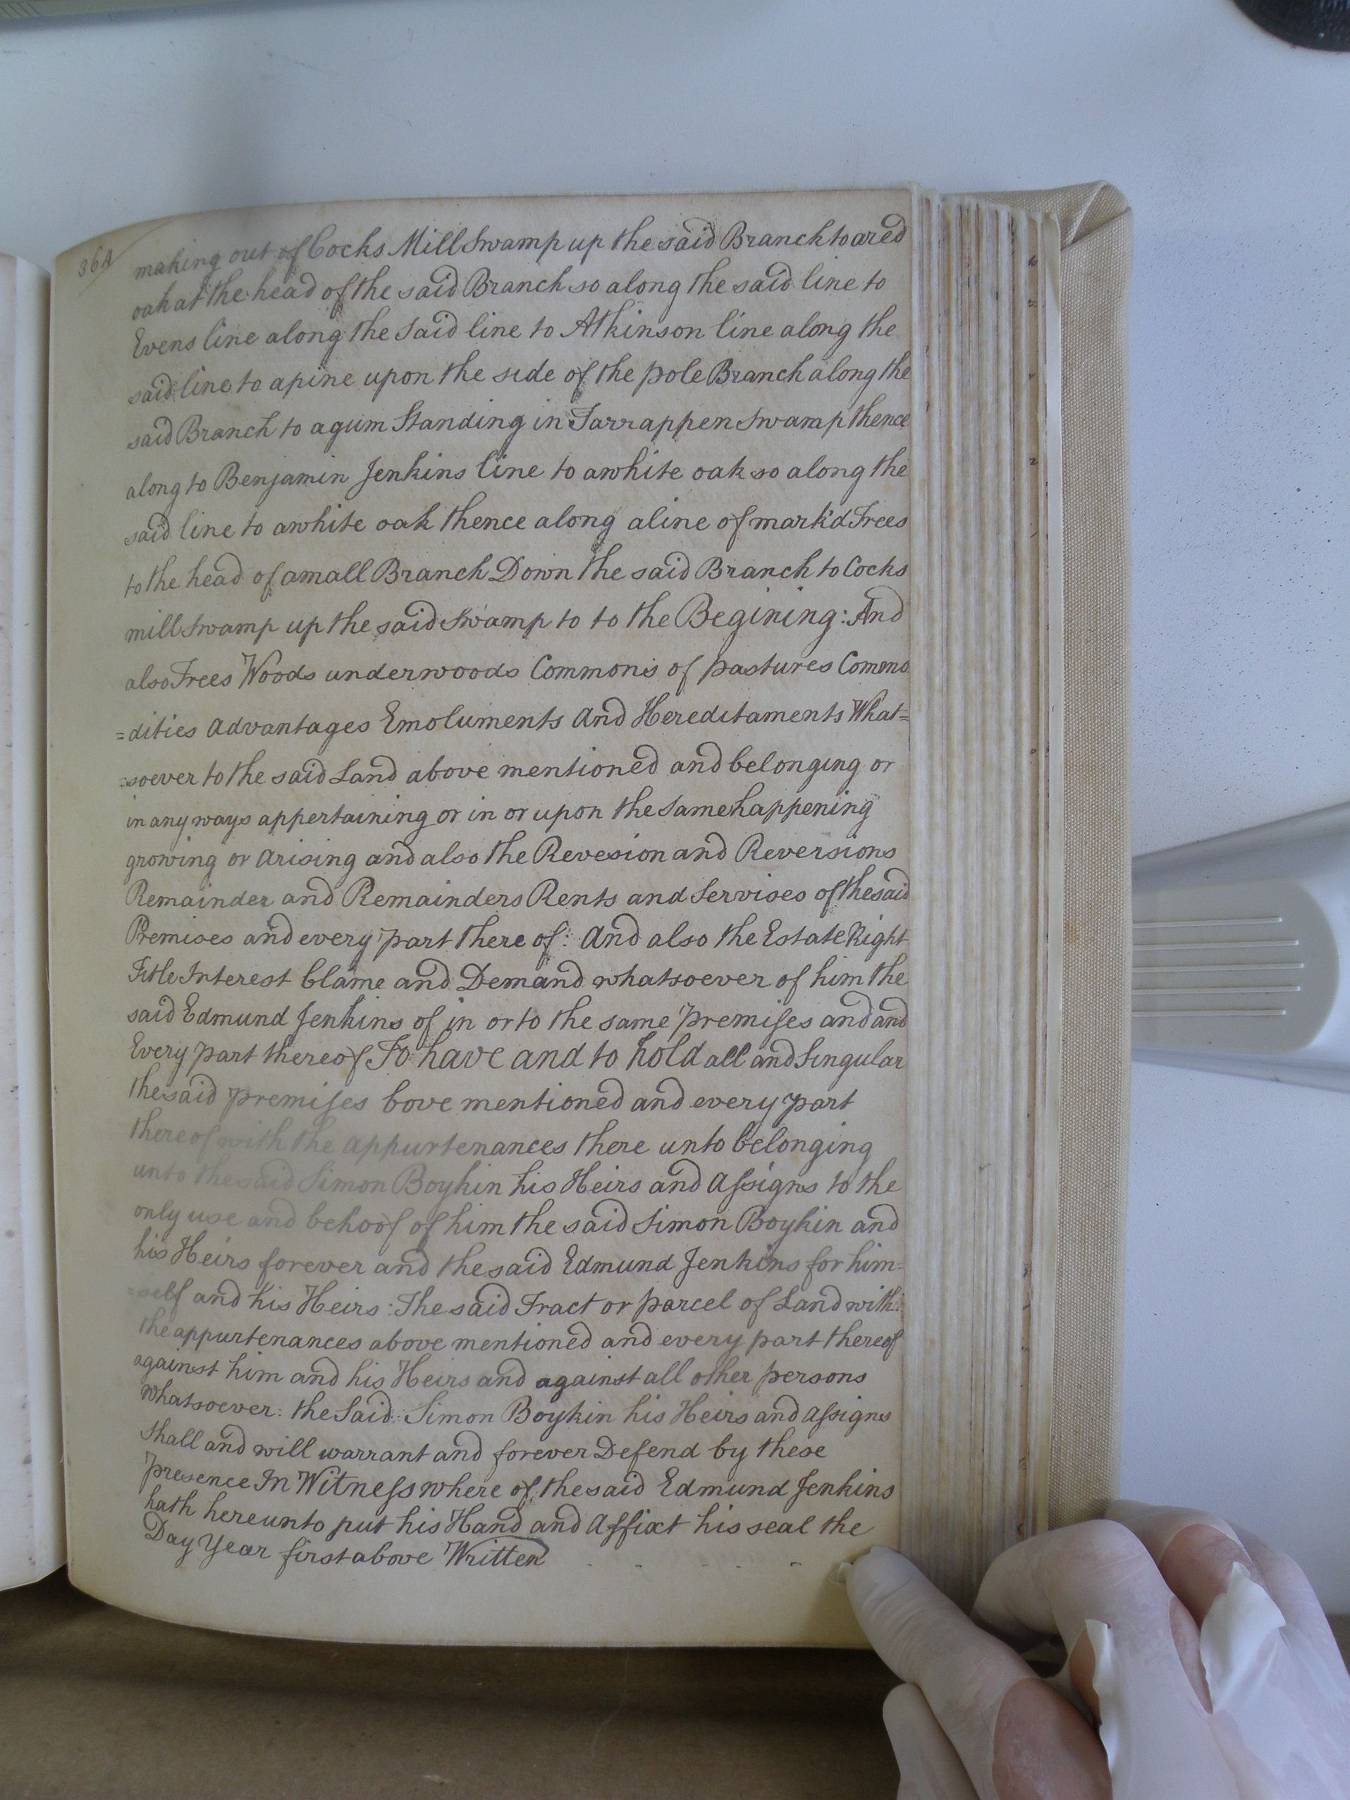 364
making out of Cocks Mill Swamp up the said Branch to a red
oak at the head of the said Branch so along the said line to
Evens line along the Said line to Atkinson line along the
said line to a pine upon the side of the pole Branch along the
said Branch to a gum Standing in Tarrappen Swamp thence
along to Benjamin Jenkins line to a white oak so along the
said line to a white oak thence along a line of mark'd Trees
to the head of a mall Branch Down the said Branch to Cocks
mill Swamp up the said Swamp to to the Begining: And
also Trees Woods underwoods Commons of pastures Comemo
=dities Advantages Emoluments And Hereditaments What=
=soever to the said Land above mentioned and belonging or
in any ways appertaining or in or upon the Same happening
growing or Arising and also the Revesion and Reversions
Remainder and Remainders Rents and Servises of the said
Premises and every part there of: And also the Estate Right
Title Interest Clame and Demand whatsoever of him the
said Edmund Jenkins of in or to the same premises and and
Every part thereof To have and to hold all and Singular
the said premises bove mentioned and every part
thereof with the appurtenances there unto belonging
unto the said Simon Boykin his Heirs and Assigns to the
only use and behoof of him the said Simon Boykin and
his Heirs forever and the said Edmund Jenkins for him=
=self and his Heirs: The said Tract or parcel of Land with
the appurtenances above mentioned and every part thereof
against him and his Heirs and against all other persons
whatsoever: the Said: Simon Boykin his Heirs and Assigns
Shall and will warrant and forever Defend by these
presence In Witness where of the said Edmund Jenkins
hath hereunto put his Hand and Affixt his seal the
Day Year first above Written